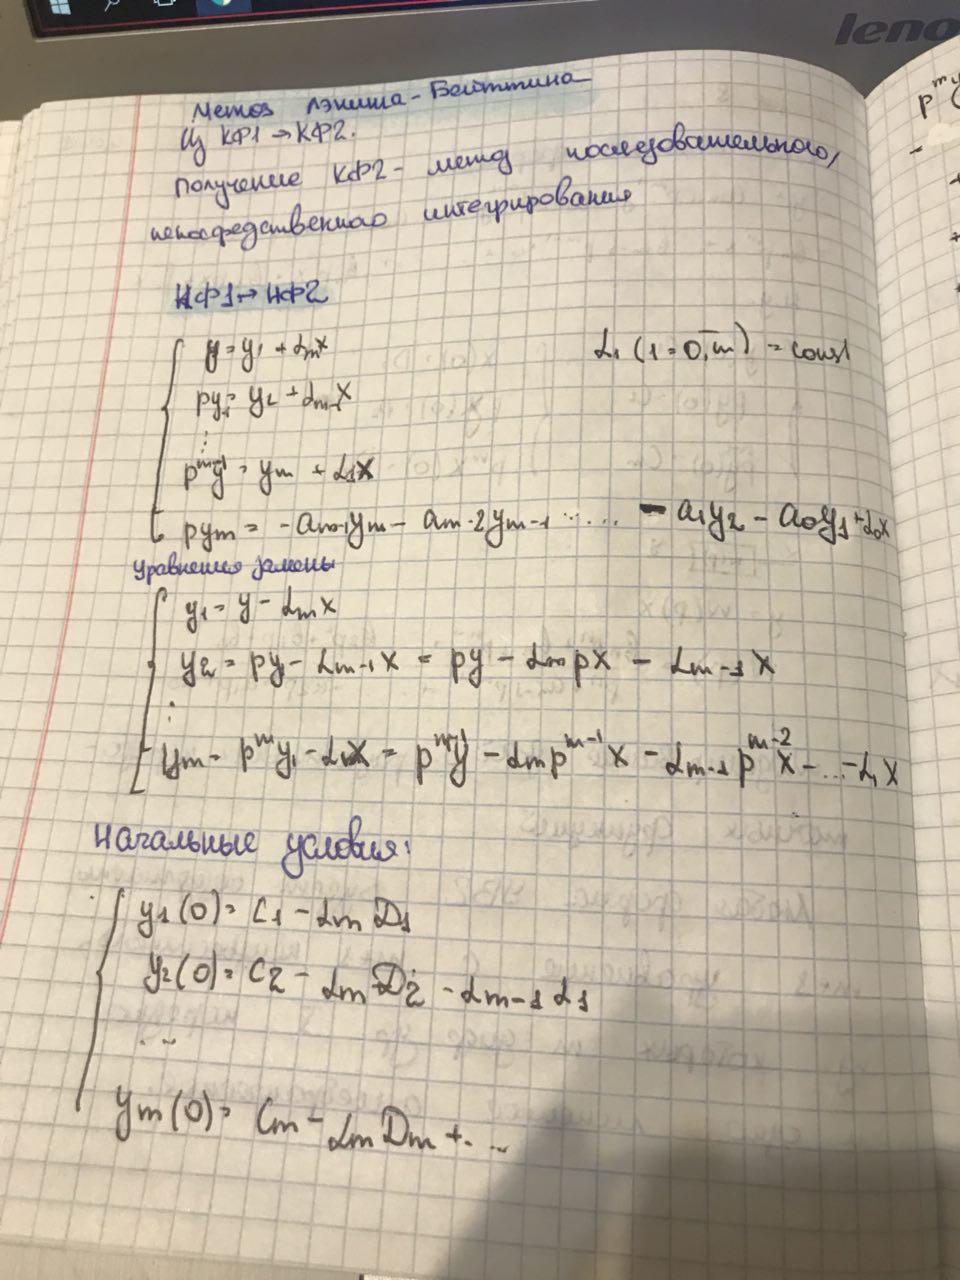 leno
Метод Лэнина-Бэттина
Из КФ1 → КФ2.
Получение КФ2 - метод последовательного,
непосредственного интегрирования
НФ1 → НФ2
y = y₁ + αₘx
α₁ (1 = 0,m̅) = const
py₁ = y₂ + αₘ₋₁x
⋮
pᵐ⁻¹y = yₘ + α₁x
pyₘ = -aₘ₋₁yₘ - aₘ₋₂yₘ₋₁ ...... - a₁y₂ - a₀y₁ + α₀x
Уравнения замены
y₁ = y - αₘx
y₂ = py₁ - αₘ₋₁x = py - αₘpx - αₘ₋₁x
⋮
yₘ = pᵐy₁ - α₁x = pᵐ⁻¹y - αₘpᵐ⁻¹x - αₘ₋₁pᵐ⁻²x - ... - α₁x
Начальные условия:
y₁(0) = C₁ - αₘD₁
y₂(0) = C₂ - αₘD₂ - αₘ₋₁α₁
...
yₘ(0) = Cₘ - αₘDₘ + ...
pᵐy